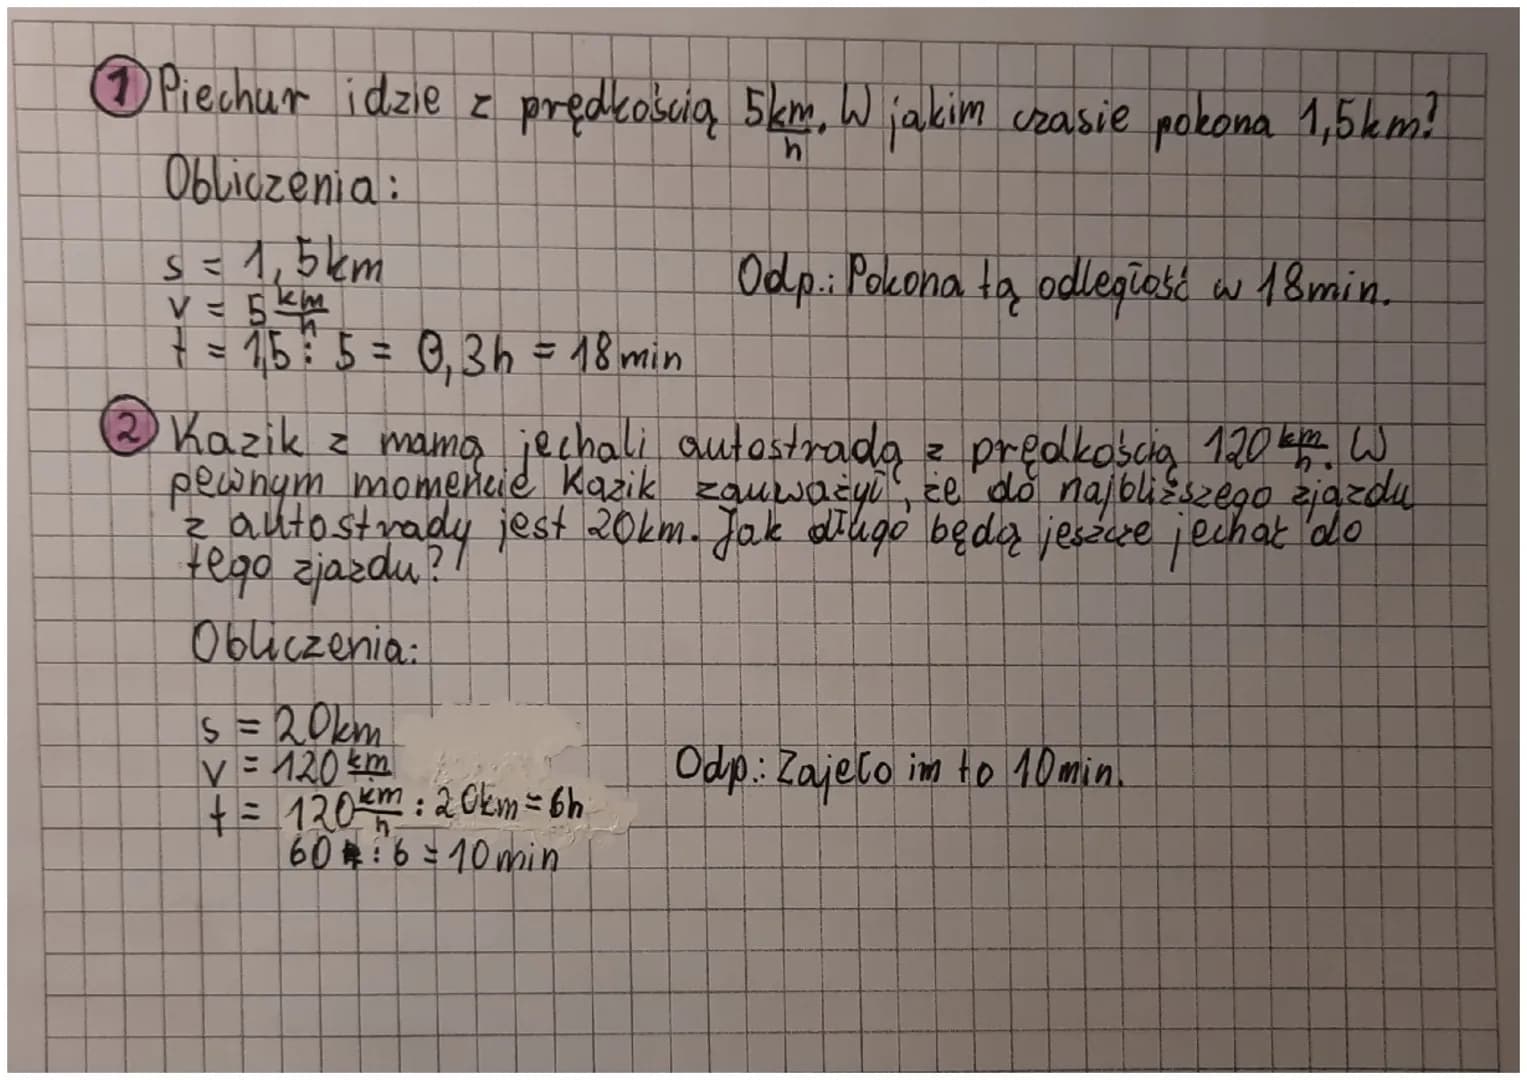 1 Piechur idzie z prędkością 5 km/h. W jakim czasie pokona 1,5km?
Obliczenia:
s = 1,5km
v = 5 km/h
t = 1,5 : 5 = 0,3h = 18min
Odp.: Pokona tą odległość w 18min.
2 Kazik z mamą jechali autostradą z prędkością 120 km/h. W
pewnym momencie Kazik zauważył, że do najbliższego zjazdu
z autostrady jest 20km. Jak długo będą jeszcze jechać do
tego zjazdu?
Obliczenia:
s = 20km
v = 120 km
t = 120 km/h : 20km = 6h
60 : 6 = 10min
Odp.: Zajeło im to 10min.